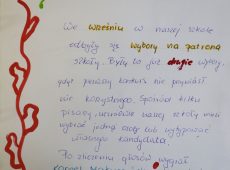 We wrześniu w naszej szkole
odbyły się wybory na patrona
szkoły. Były to już drugie wybory,
gdyż pierwszy konkurs nie
nic korzystnego. Spośród kilku
pisarzy uczniowie naszej szkoły mieli
wybrać jedną osobę lub wytypować
własnego kandydata.
Po zliczeniu głosów wygrał